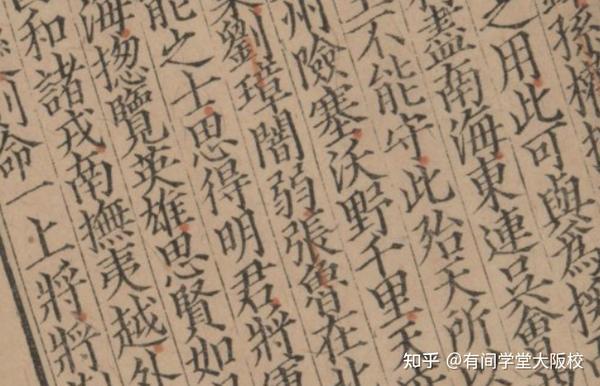 孫權
之用此可與爲援
盡南海東連吳會
不能守此殆天所
州險塞沃野千里天
劉璋闇弱張魯在
能之士思得明君將
海揔覽英雄思賢如
和諸戎南撫夷越外
命一上將將
知乎 @有间学堂大阪校